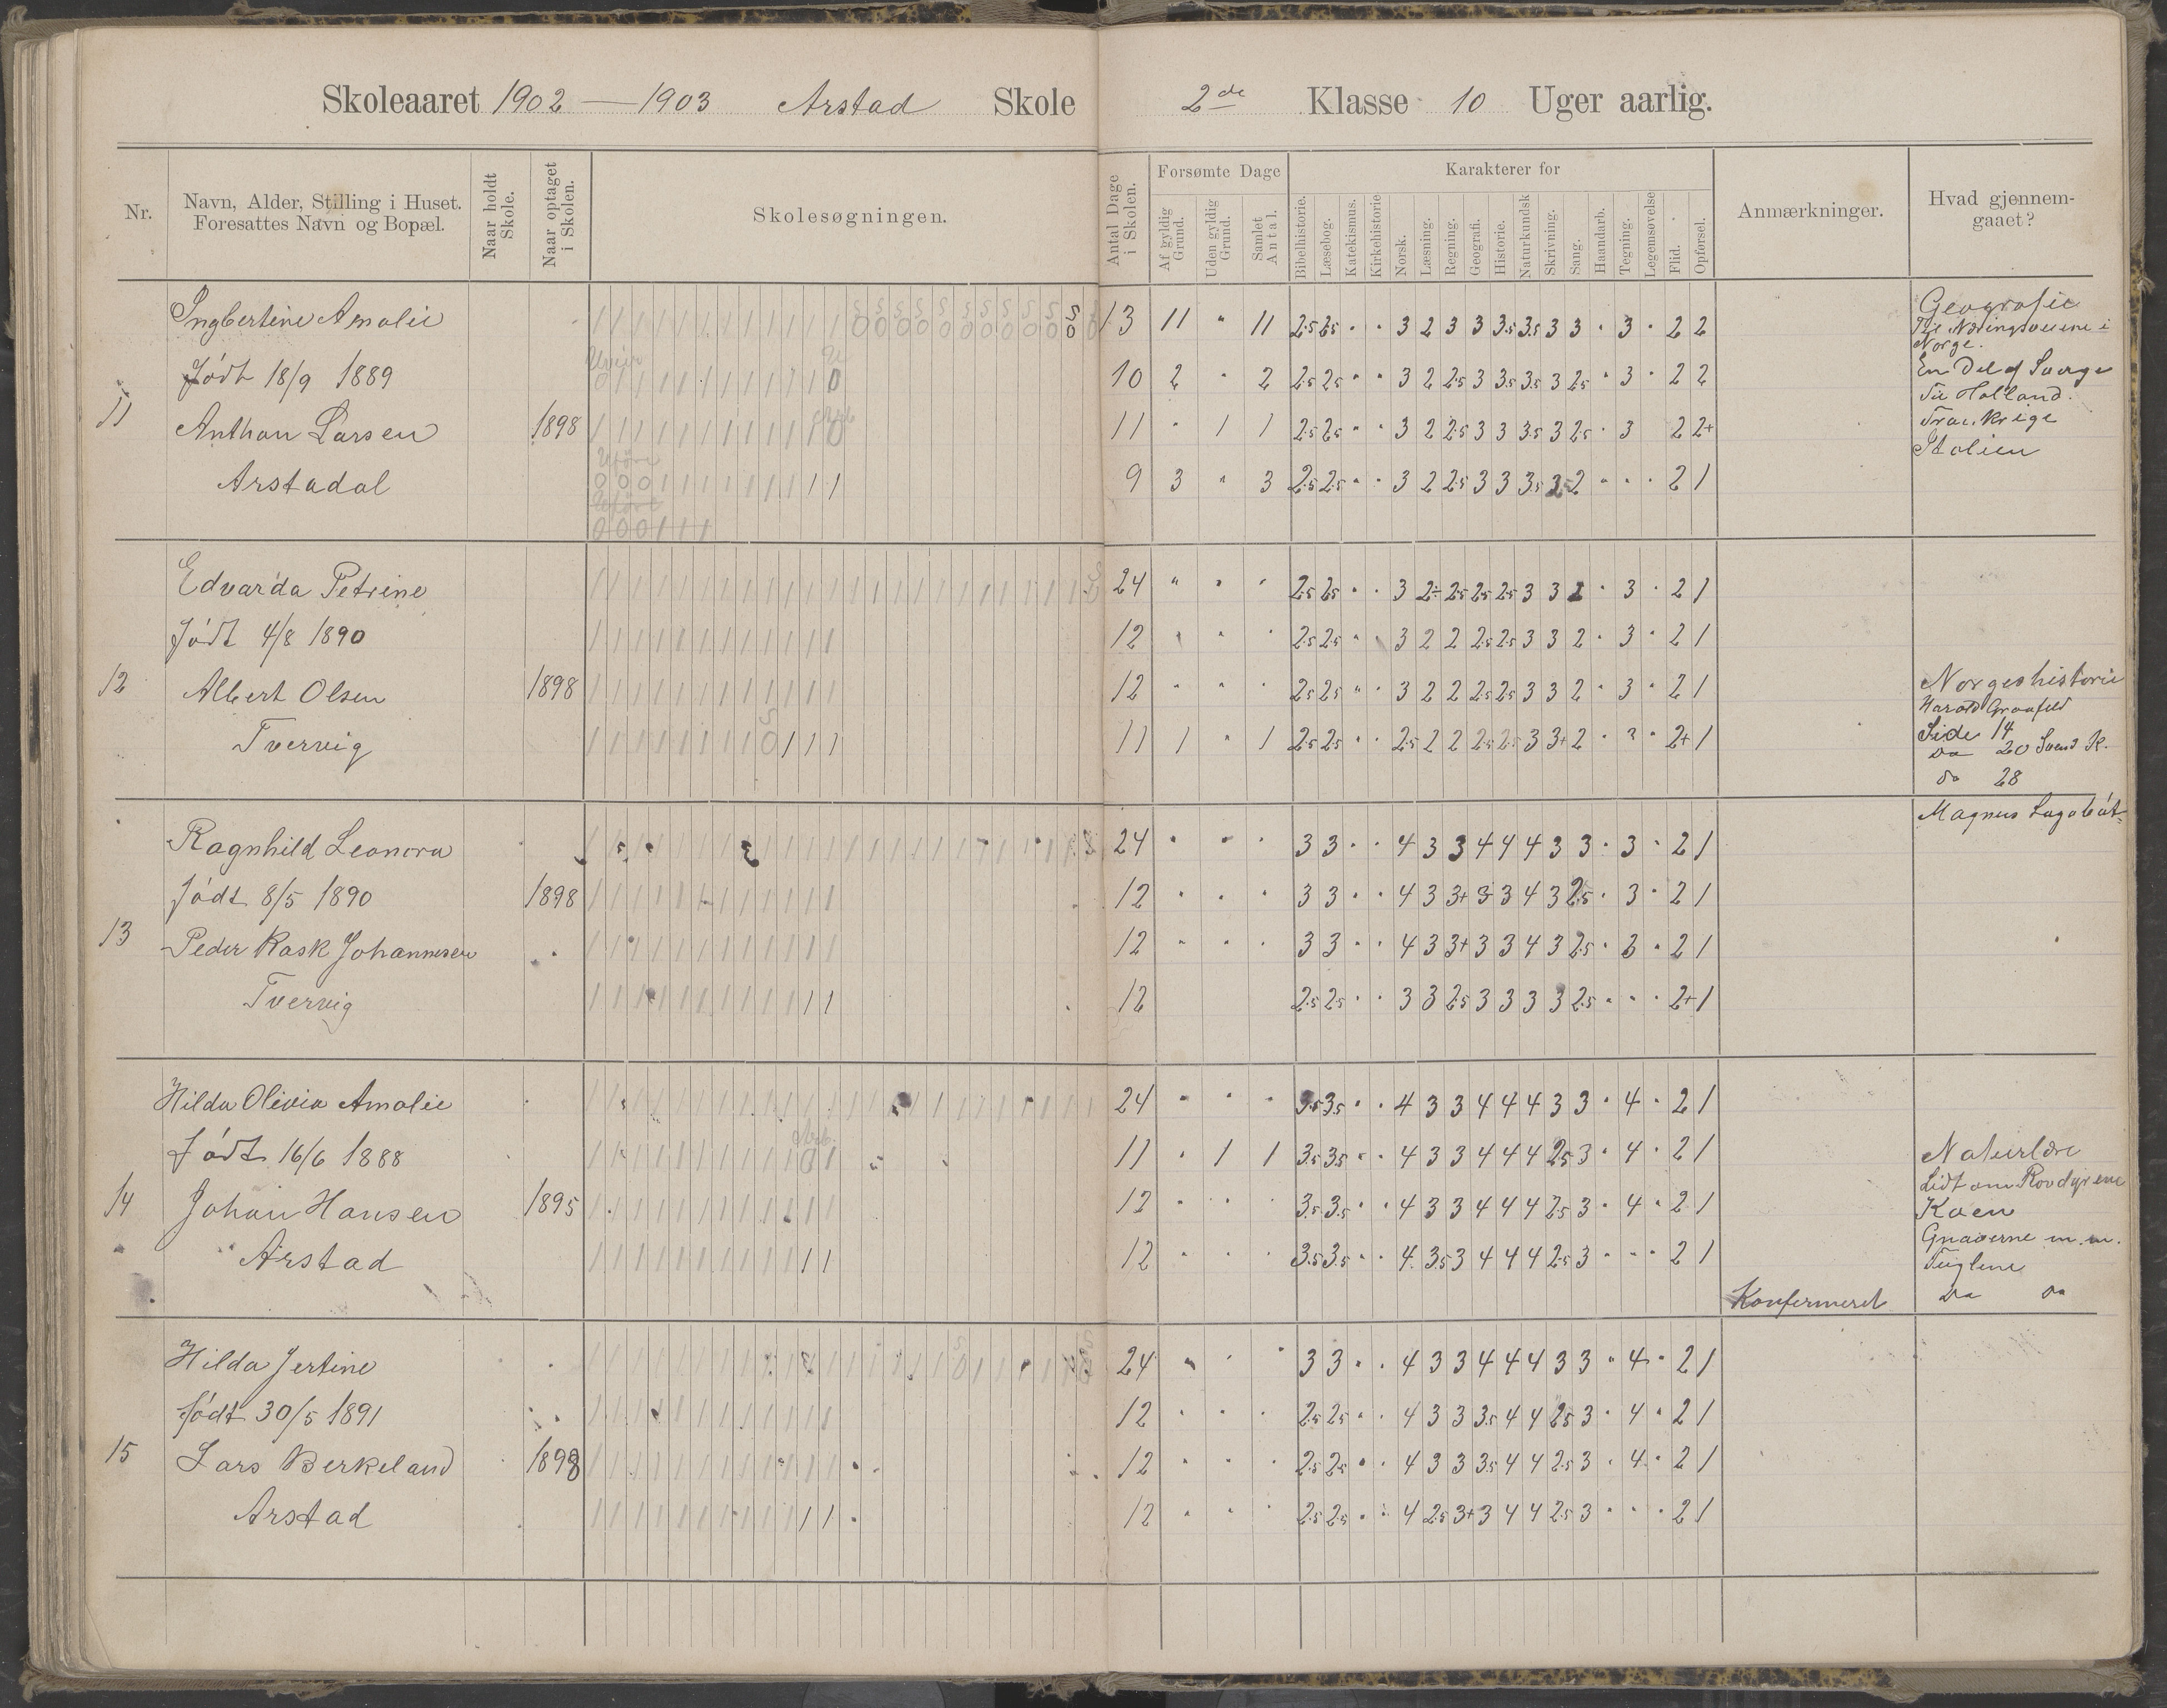 Skoleaaret 1902 — 1903 Arstad Skole 2de Klasse 10 Uger aarlig.
Nr.
Navn, Alder, Stilling i Huset. Foresattes Navn og Bopæl.
Naar holdt Skole.
Naar optaget i Skolen.
Skolesøgningen.
Antal Dage i Skolen.
Forsømte Dage
Af gyldig Grund.
Uden gyldig Grund.
Samlet Antal.
Karakterer for
Bibelhistorie.
Læsebog.
Katekismus.
Kirkehistorie
Norsk.
Læsning.
Regning.
Geografi.
Historie.
Naturkundsk
Skrivning.
Sang.
Haandarb.
Tegning.
Legemsøvelse
Flid.
Opførsel.
Anmærkninger.
Hvad gjennemgaaet?
11
Ingbertine Amalie 13 11 " 11 2.5 2.5 " " 3 2 3 3 3.5 3.5 3 3 " 3 " 2 2
Født 18/9 1889 10 2 " 2 2.5 2.5 " " 3 2 2.5 3 3.5 3.5 3 2.5 " 3 " 2 2
Anthon Larsen 1898 11 " 1 1 2.5 2.5 " " 3 2 2.5 3 3 3.5 3 2.5 " 3 2 2+
Arstadal 9 3 " 3 2.5 2.5 " " 3 2 2.5 3 3 3.5 3 2 " " " 2 1
Geografie
Til Næringsveiene i
Norge.
En Del af Sverge
Til Holland.
Frankrige
Italien
12
Edvarda Petrine 24 " " " 2.5 2.5 " " 3 2÷ 2.5 2.5 2.5 3 3 2 " 3 " 2 1
Født 4/8 1890 12 " " " 2.5 2.5 " " 3 2 2 2.5 2.5 3 3 2 " 3 " 2 1
Albert Olsen 1898 12 " " " 2.5 2.5 " " 3 2 2 2.5 2.5 3 3 2 " 3 " 2 1
Tvervig 11 1 " 1 2.5 2.5 " " 2.5 2 2 2.5 2.5 3 3+ 2 " " 2+ 1
Norgeshistorie
Harald Graafeld
Side 14
Do 20 Svend K.
Do 28
Magnus Lagabøt
13
Ragnhild Leonora 24 " " " 3 3 " " 4 3 3 4 4 4 3 3 " 3 " 2 1
Født 8/5 1890 1898 12 " " " 3 3 " " 4 3 3+ 3 3 4 3 2.5 " 3 " 2 1
Peder Rask Johannesen 12 " " " 3 3 " " 4 3 3+ 3 3 4 3 2.5 " 3 " 2 1
Tvervig 12 2.5 2.5 " " 3 3 2.5 3 3 3 3 2.5 " " " 2+ 1
14
Hilda Olivia Amalie 24 " " " 3.5 3.5 " " 4 3 3 4 4 4 3 3 " 4 " 2 1
Født 16/6 1888 11 " 1 1 3.5 3.5 " " 4 3 3 4 4 4 2.5 3 " 4 " 2 1
Johan Hansen 1895 12 " " " 3.5 3.5 " " 4 3 3 4 4 4 2.5 3 " 4 " 2 1
Arstad 12 " " " 3.5 3.5 " " 4 3.5 3 4 4 4 2.5 3 " " " 2 1
Konfermeret
Naturlære
Lidt om Rovdyrene
Koen
Gnaverne m.m.
Fuglene
Do Do
15
Hilda Jertine 24 " " " 3 3 " " 4 3 3 4 4 4 3 3 " 4 " 2 1
Født 30/5 1891 12 " " " 2.5 2.5 " " 4 3 3 3.5 4 4 2.5 3 " 4 " 2 1
Lars Berkeland 1898 12 " " " 2.5 2.5 " " 4 3 3 3.5 4 4 2.5 3 " 4 " 2 1
Arstad 12 " " " 2.5 2.5 " " 4 2.5 3+ 3 4 4 2.5 3 " " " 2 1